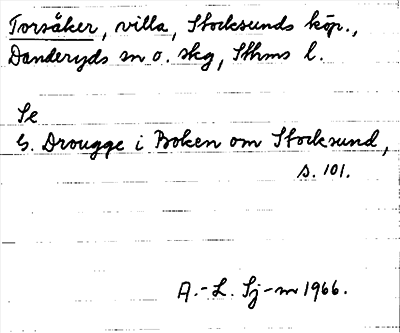 Torsåker, villa, Stocksunds köp.,
Danderyds sn o. skg, Sthms l.
Se
G. Drougge i Boken om Stocksund,
s. 101.
A.-L. Sj-m 1966.